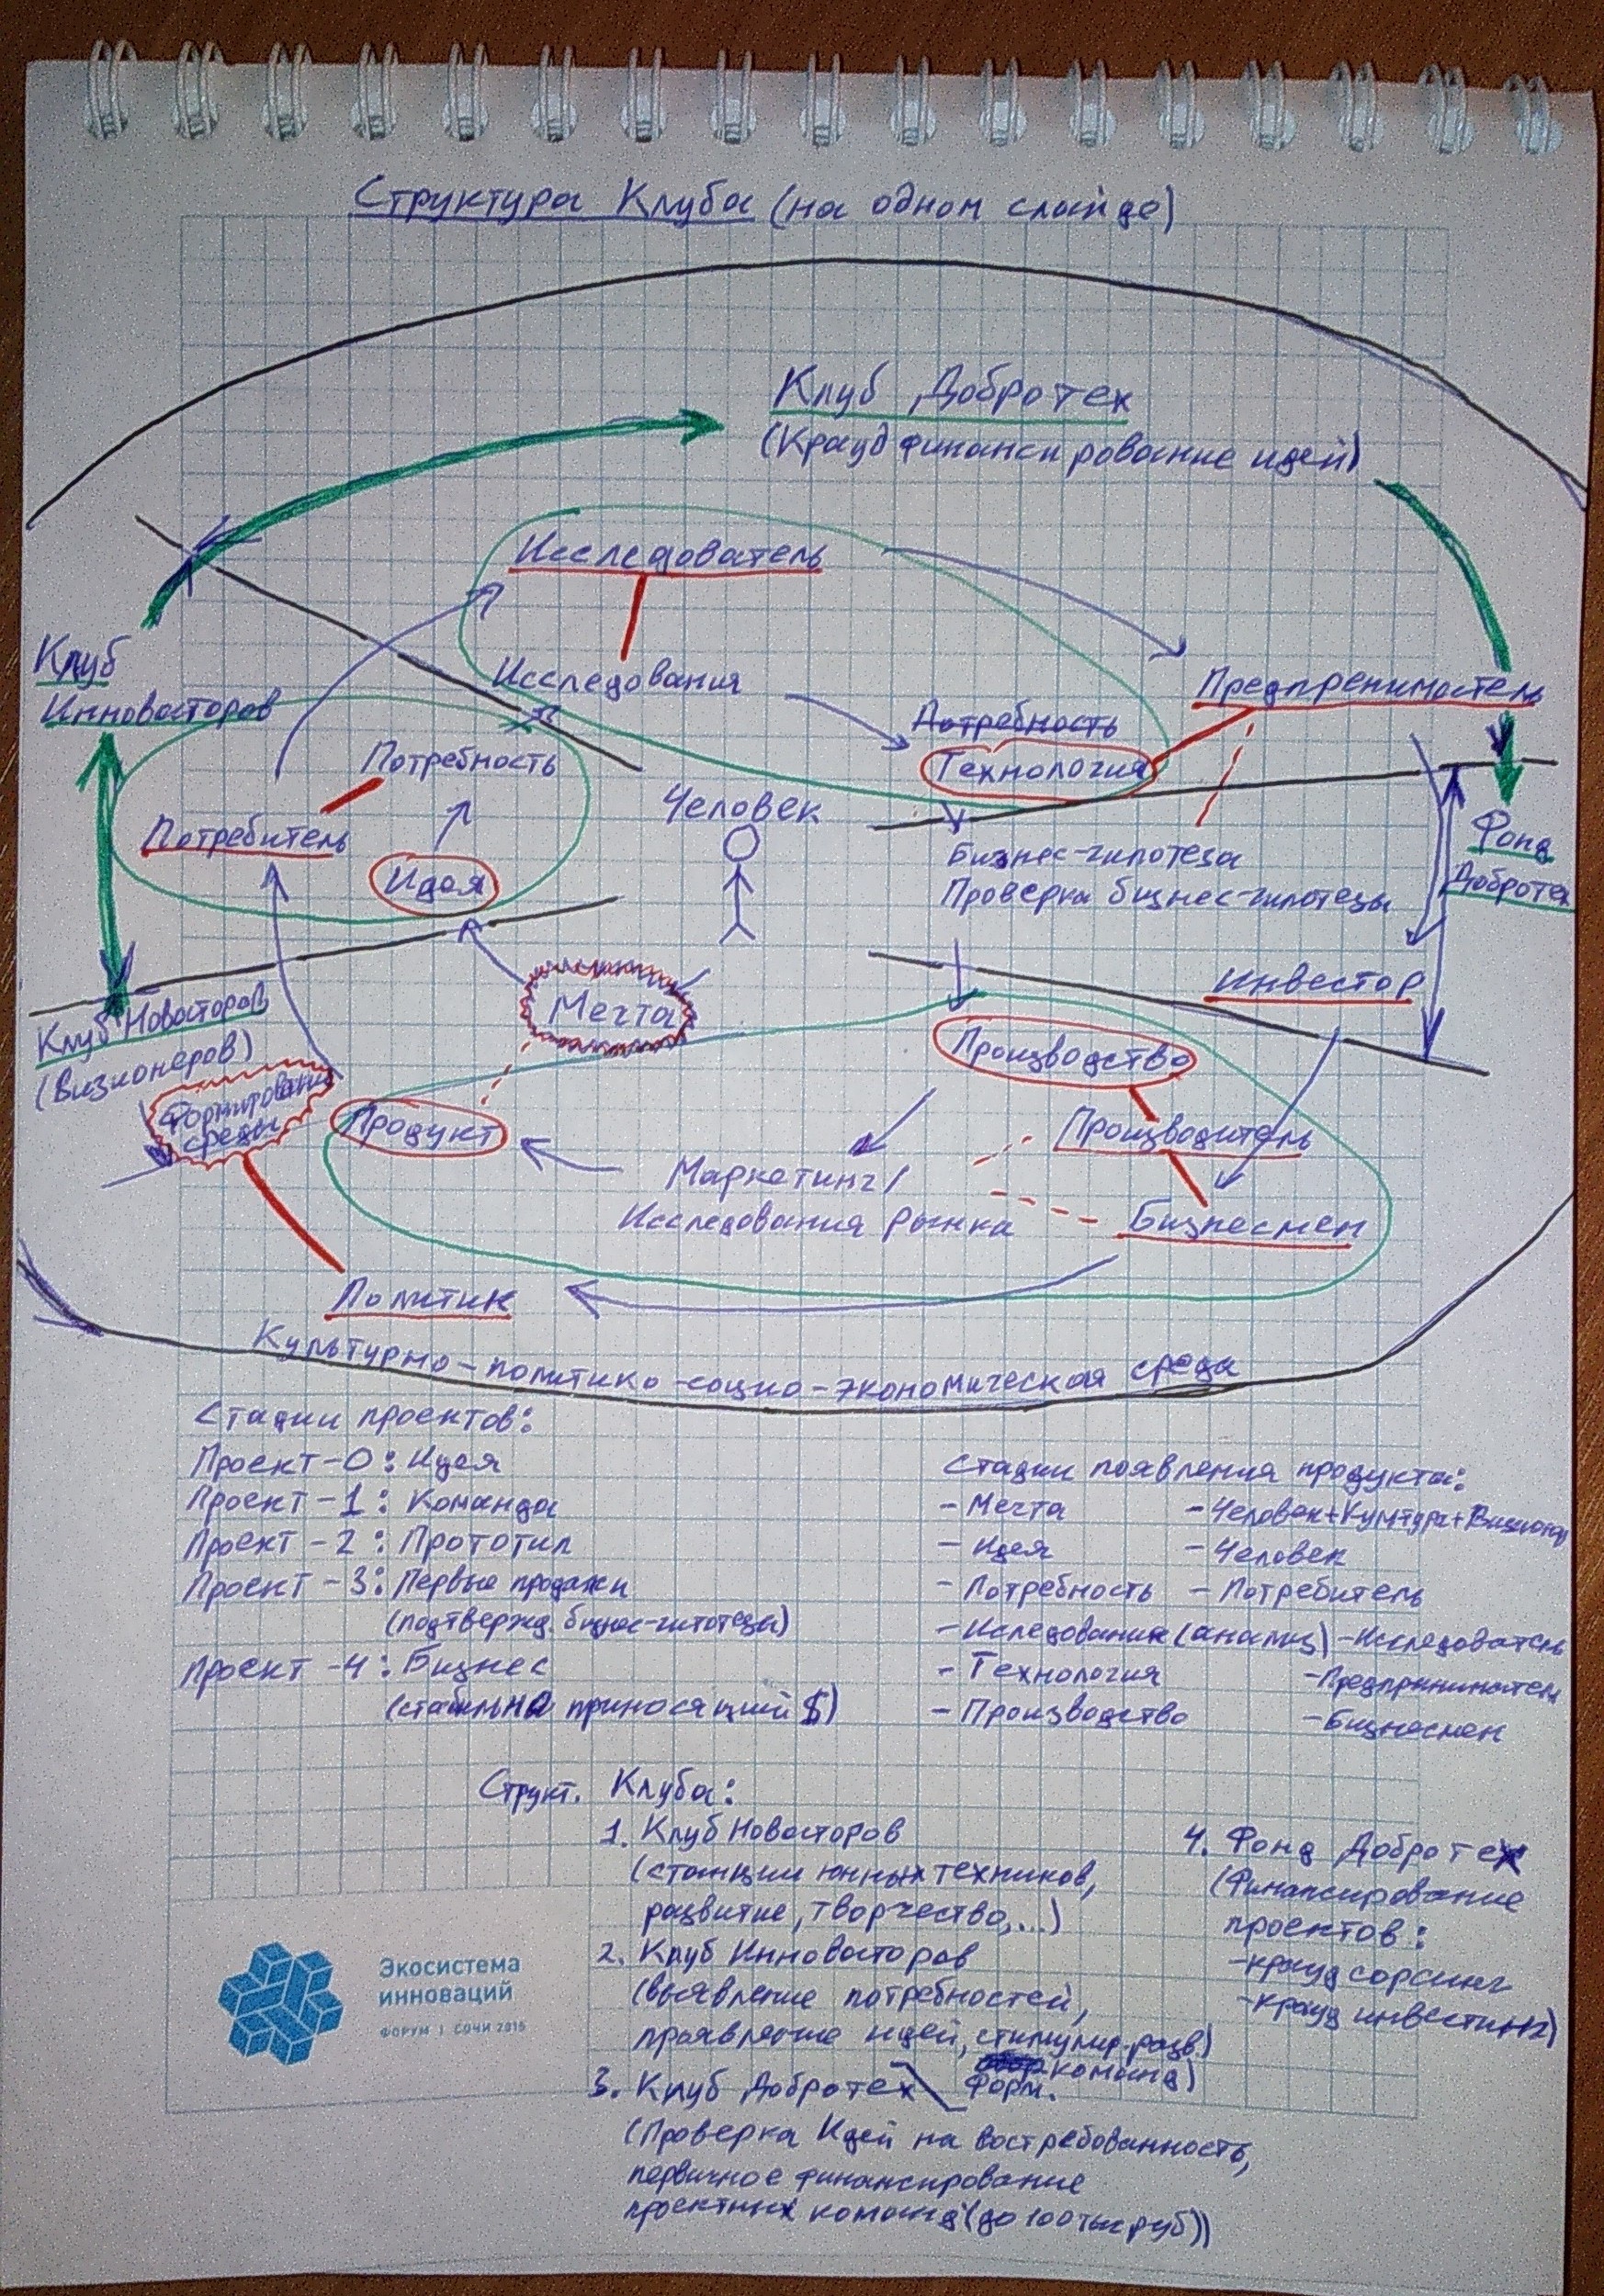 Структура Клуба (на одном слайде)
Клуб Добротех
(Краудфинансирование идей)
Исследователь
Исследования
Клуб
Инноваторов
Предприниматель
Потребность
Технология
Потребность
Потребитель
Идея
Человек
Бизнес-гипотеза
Проверка бизнес-гипотезы
Фонд
Добротех
Инвестор
Мечта
Клуб Новаторов
(Визионеров)
Формирование
среды
Продукт
Производство
Производитель
Маркетинг/
Исследования рынка
Бизнесмен
Политик
Культурно-политико-социо-экономическая среда
Стадии проектов:
Проект-0: Идея
Проект-1: Команда
Проект-2: Прототип
Проект-3: Первые продажи
(подтвержд. бизнес-гипотезы)
Проект-4: Бизнес
(стабильно приносящий $)
Стадии появления продукта:
- Мечта - Человек+Культура+Визионер
- Идея - Человек
- Потребность - Потребитель
- Иследования (анализ) - Исследователь
- Технология - Предприниматель
- Производство - Бизнесмен
Структ. Клуба:
1. Клуб Новаторов
(станции юнных техников,
развитие, творчество,...)
2. Клуб Инноваторов
(выявление потребностей,
проявление идей, стимулир. разв.)
Форм. команд)
3. Клуб Добротех
(Проверка Идей на востребованность,
первичное финансирование
проектных команд (до 100 тыс руб))
4. Фонд Добротех
(Финансирование
проектов:
- крауд сорсинг
- крауд инвестинг)
Экосистема
инноваций
ФОРУМ | СОЧИ 2015